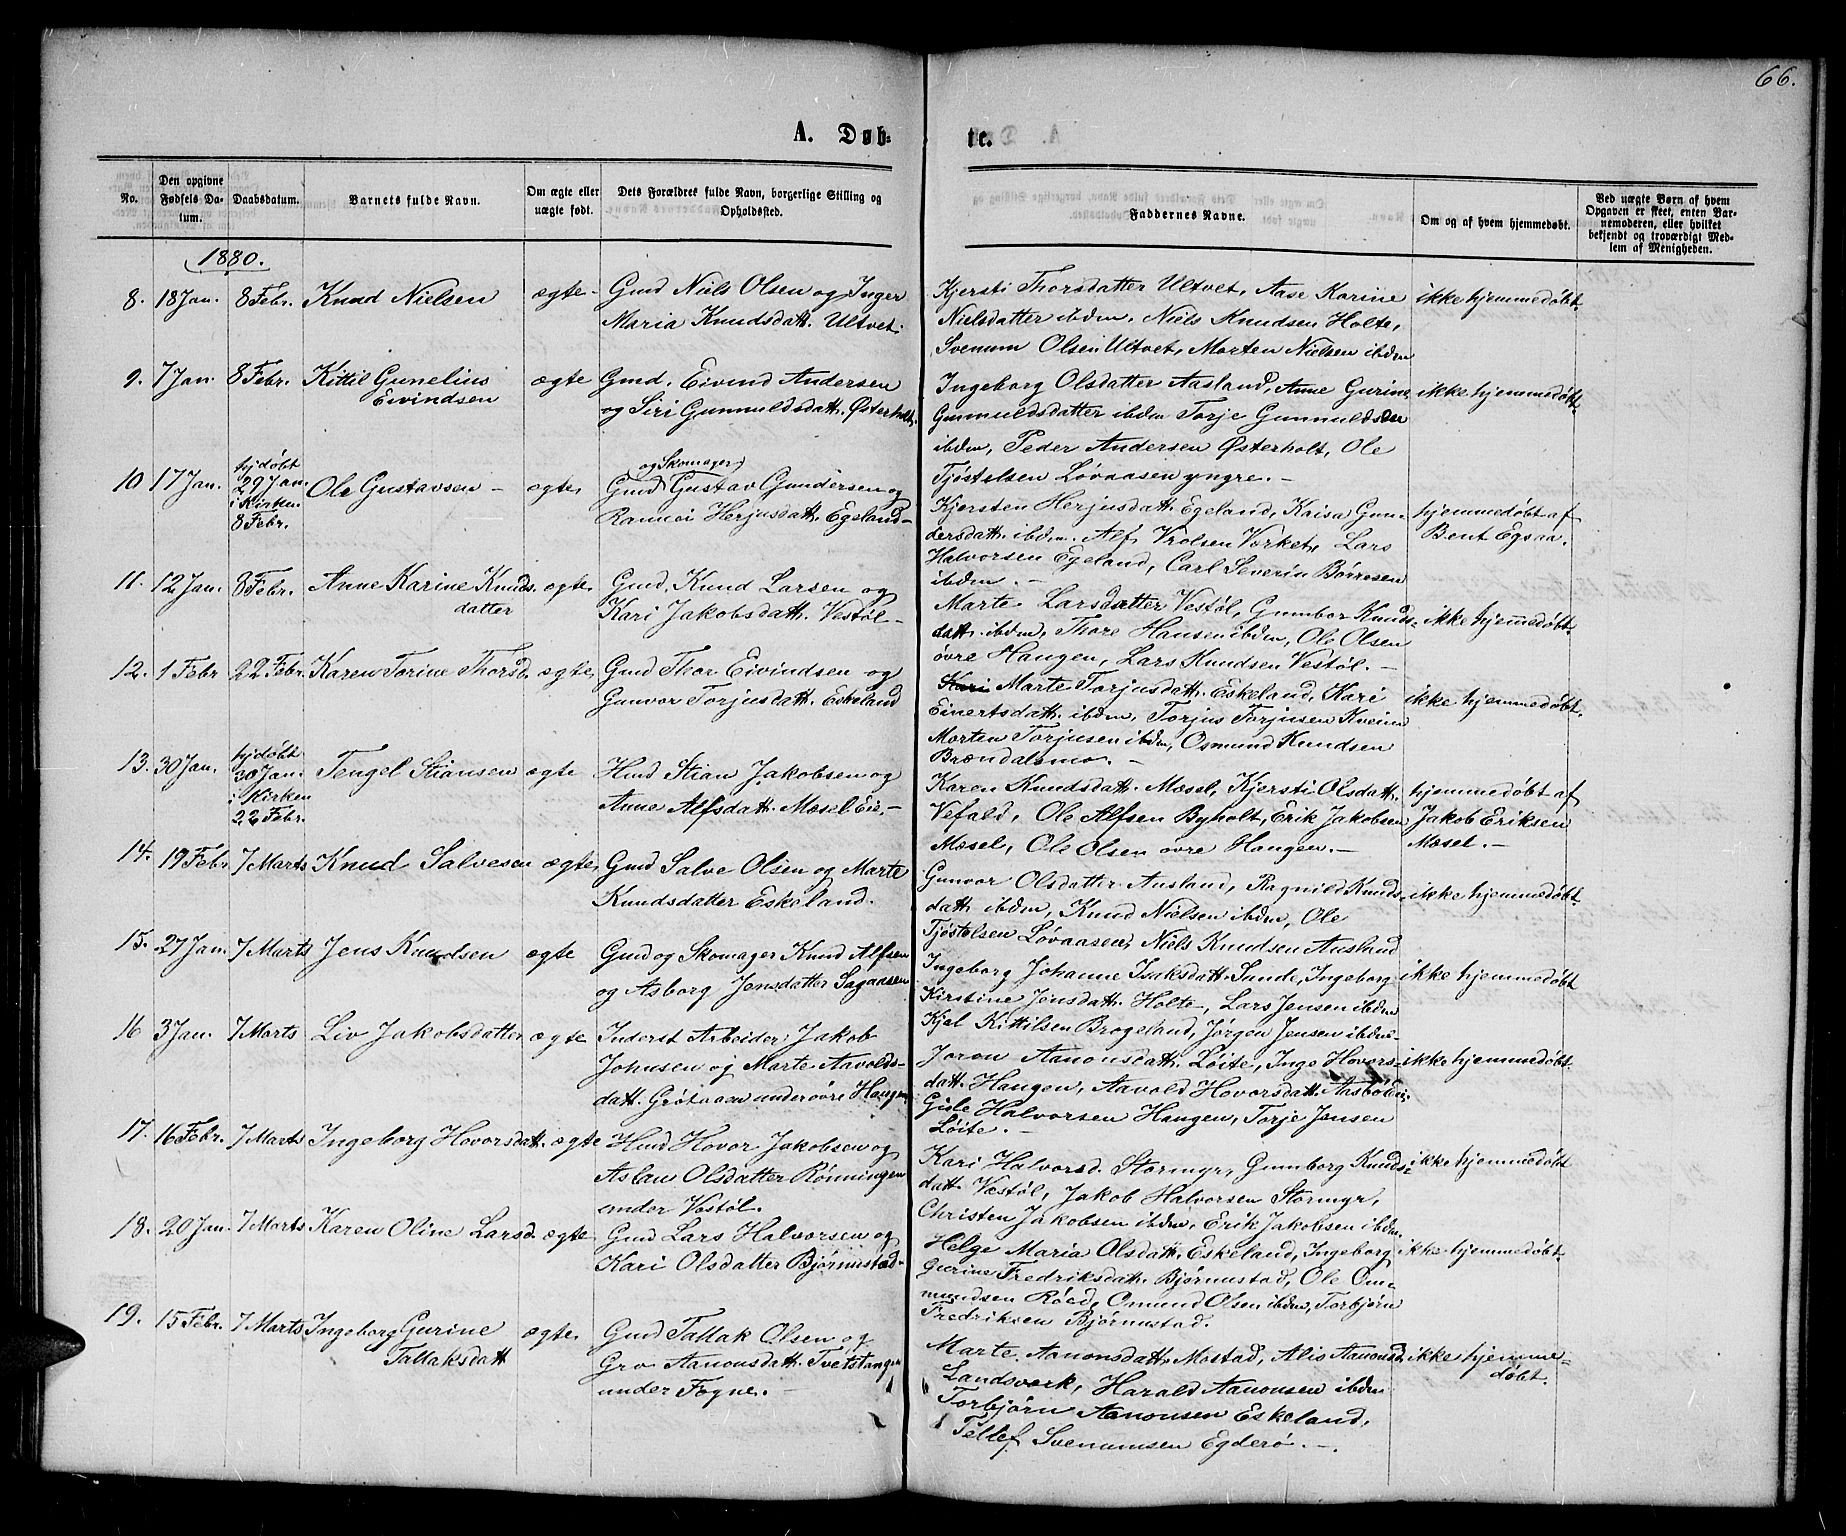 66.
A. Døb-
te.
No.
Den opgivne Fødsels Da-
tum.
Daabsdatum.
Barnets fulde Navn.
Om ægte eller
uægte født.
Dets Forældres fulde Navn, borgerlige Stilling og
Opholdssted.
Faddernes Navne.
Om og af hvem hjemmedøbt.
Ved uægte Børn af hvem
Opgaven er skeet, enten Bar-
nemoderen, eller hvilket
bekjendt og troværdigt Med-
lem af Menigheden.
1880.
8. 18 Jan. 8 Febr. Knud Nielsen ægte- Gmd Niels Olsen og Inger
Maria Knudsdatt. Ultvet.
Kjersti Thorsdatter Ultvet, Aase Karine
Nielsdatter ibdm, Niels Knudsen Holte,
Svenum Olsen Ultvet, Morten Nielsen ibdm
ikke hjemmedøbt
9. 7 Jan. 8 Febr. Kittil Gunelius
Eivindsen
ægte Gmd. Eivind Andersen
og Siri Gunnuldsdatt. Østerholt,
Ingeborg Olsdatter Aasland, Anne Gurine
Gunnuldsdatter ibdm Torje Gunnuldsen
ibdm, Peder Andersen Østerholt, Ole
Tjøstelsen Løvaasen yngre. -
ikke hjemmedøbt
10. 17 Jan. hjdøbt
29 Jan.
i Kirken
8 Febr.
Ole Gustavsen - ægte,
og Skomager,
Gmd Gustav Gundersen og
Rannei Herjusdatt. Egeland-
Kjersten Herjusdatt. Egeland, Kaisa Gun-
dersdatt. ibdm. Alf Vrolsen Vorket, Lars
Halvorsen Egeland, Carl Severin Børresen
ibdm. -
hjemmedøbt af
Bent Egsaa.
11. 12 Jan. 8 Febr. Anne Karine Knuds-
datter
ægte, Gmd. Knud Larsen og
Kari Jakobsdatt. Vestøl-
Marte Larsdatter Vestøl, Gumbor Knuds-
datt. ibdm, Thore Hansen ibdm, Ole Olsen
øvre Haugen, Lars Knudsen Vestøl. -
ikke hjemmedøbt.
12. 1 Febr 22 Febr. Karen Torine Thorsd. ægte, Gmd Thor Eivindsen og
Gunvor Torjusdatt. Eskeland
Kari Marte Torjusdatt. Eskeland, Kari
Einertsdatt. ibdm, Torjus Torjusen
Morten Torjusen ibdm, Osmund Knudsen
Brændalsmo. -
ikke hjemmedøbt.
13. 30 Jan. hjdøbt
30 Jan.
i Kirken
22 Febr.
Tengel Stiansen ægte Hmd Stian Jakobsen og
Anne Alfsdatt. Mosel Eie, -
Karen Knudsdatt. Mæsel, Kjersti Olsdatt.
Vefald, Ole Alfsen Byholt, Erik Jakobsen
Mæsel, Ole Olsen øvre Haugen. -
hjemmedøbt af
Jakob Eriksen
Mæsel. -
14. 19 Febr 7 Marts Knud Salvesen ægte, Gmd Salve Olsen og Marte
Knudsdatter Eskeland.
Gunvor Olsdatter Ausland, Ragnild Knuds-
datt. ibdm, Knud Nielsen ibdm, Ole
Tjøstelsen Løvaasen, Niels Knudsen Ausland
ikke hjemmedøbt
15. 27 Jan. 7 Marts Jens Knudsen ægte Gmd og Skomager Knud Alfsen
og Asborg Jensdatter Sagaasen
Ingeborg Johanne Isaksdatt. Sunde, Ingeborg
Kirstine Jensdatt. Holte, Lars Jensen ibdm
Kjel Kittilsen Brogeland, Jørgen Jensen ibdm-
ikke hjemmedøbt
16 3 Jan. 7 Marts Liv Jakobsdatter ægte Inderst Arbeider Jakob
Johnsen og Marte Aavolds-
datt. under øvre Haugen
Joron Aanonsdatt. Løite, Inge Hovors-
datt. Haugen, Aavold Hovorsdatt.
Gjule Halvorsen Haugen, Torje Jensen
Løite. -
ikke hjemmedøbt.
17. 16 Febr. 7 Marts Ingeborg Hovorsdatt. ægte Hmd Hovor Jakobsen og
Aslau Olsdatter Rønningen
under Vestøl.
Kari Halvorsd. Stormyr, Gumborg Knuds-
datt. Vestøl, Jakob Halvorsen Stormyr,
Christen Jakobsen ibdm, Erik Jakobsen ibdm.
ikke hjemmedøbt
18. 20 Jan. 7 Marts Karen Oline Larsd. ægte Gmd Lars Halvorsen og
Kari Olsdatter Bjørnustad-
Helge Maria Olsdatt. Eskeland, Ingeborg
Gurine Fredriksdatt. Bjørnustad, Ole Om-
mundsen Røed, Omund Olsen ibdm, Torbjørn
Fredriksen Bjørnustad.
ikke hjemmedøbt.
19. 15 Febr. 7 Marts Ingeborg Gurine
Tallaksdatt
ægte, Gmd Tallak Olsen og
Gro Aanonsdatt. Tvetstangen
under Fogne. -
Marte Aanonsdatt. Mostad, Alis Aanonsd.
Landsverk, Harald Aanonsen ibdm
Torbjørn Aanonsen Eskeland,
Tellef Svenumsen Egderø. -.
ikke hjemme-
døbt.